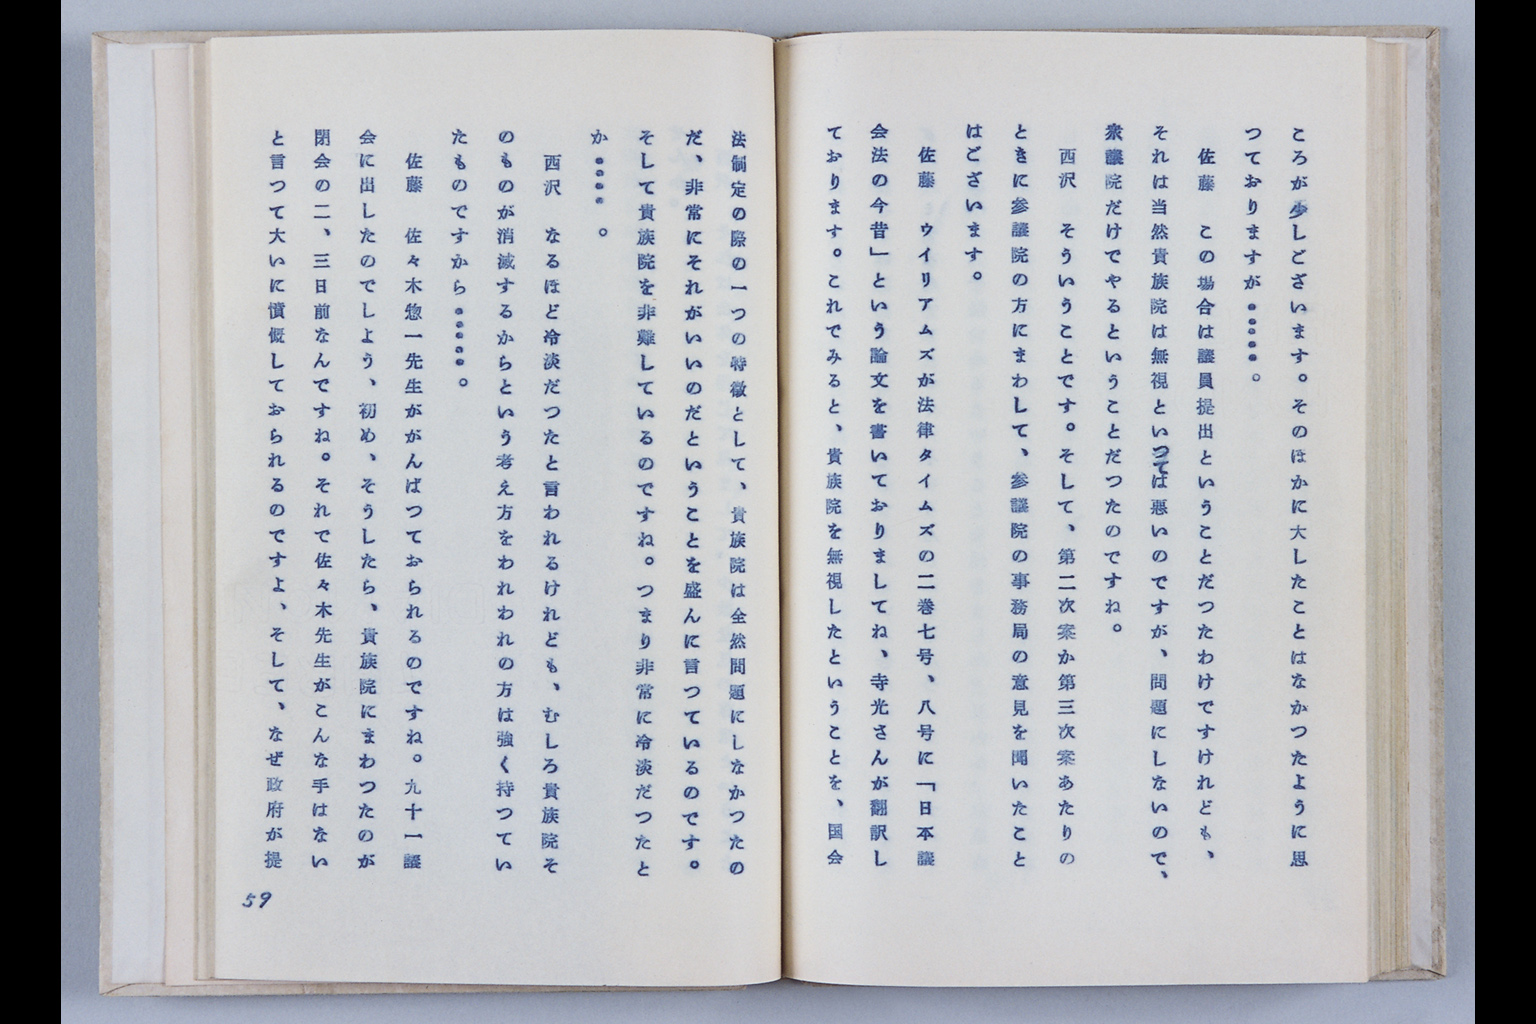 ころが少しございます。そのほかに大したことはなかつたように思
つておりますが‥‥‥。
佐藤　この場合は議員提出ということだつたわけですけれども、
それは当然貴族院は無視といつては悪いのですが、問題にしないので、
衆議院だけでやるということだつたのですね。
西沢　そういうことです。そして、第二次案か第三次案あたりの
ときに参議院の方にまわして、参議院の事務局の意見を聞いたこと
はございます。
佐藤　ウイリアムズが法律タイムズの二巻七号、八号に「日本議
会法の今昔」という論文を書いておりましてね、寺光さんが翻訳し
ております。これでみると、貴族院を無視したということを、国会
法制定の際の一つの特徴として、貴族院は全然問題にしなかつたの
だ、非常にそれがいいのだということを盛んに言つているのです。
そして貴族院を非難しているのですね。つまり非常に冷淡だつたと
か‥‥。
西沢　なるほど冷淡だつたと言われるけれども、むしろ貴族院そ
のものが消滅するからという考え方をわれわれの方は強く持つてい
たものですから‥‥‥。
佐藤　佐々木惣一先生ががんばつておられるのですね。九十一議
会に出したのでしよう、初め、そうしたら、貴族院にまわつたのが
閉会の二、三日前なんですね。それで佐々木先生がこんな手はない
と言つて大いに憤慨しておられるのですよ、そして、なぜ政府が提
59